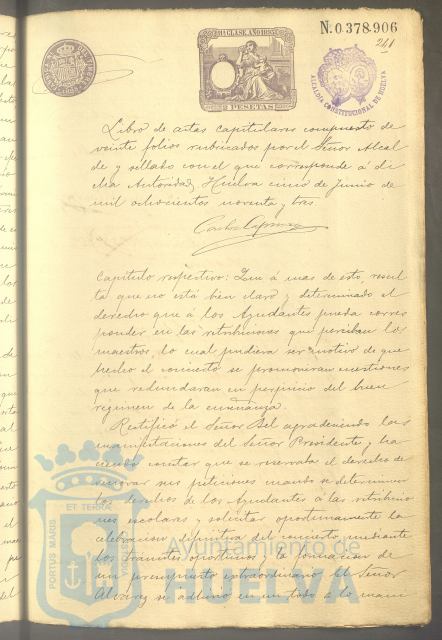 N.0.378.906
241
11ª CLASE AÑO 1893
2 PESETAS
ALCALDIA CONSTITUCIONAL DE HUELVA
Libro de actas capitulares compuesto de
veinte folios rubricados por el Señor Alcal
de y sellado con el que corresponde á di
cha Autoridad, Huelva cinco de Junio de
mil ochocientos noventa y tres.
Capitulo respectivo: Que á mas de esto, resul
ta que no está bien claro y determinado el
derecho que á los Ayudantes pueda corres
ponder en las retribuciones que perciban los
maestros, lo cual pudiera ser motivo de que
hecho el concierto se promovieran cuestiones
que redundaran en perjuicio del buen
régimen de la enseñanza.
Rectificó el Señor Bel agradeciendo las
manifestaciones del Señor Presidente y ha
ciendo constar que se reservaba el derecho de
renovar sus peticiones cuando se determinen
los derechos de los Ayudantes á las retribucio
nes escolares y solicitar oportunamente la
celebracion definitiva del concierto mediante
los trámites oportunos y la formacion de
un presupuesto extraordinario. El Señor
Alvarez se adhirió en un todo á lo mani
PORTUS MARIS ET TERRAE CUSTODIA
Ayuntamiento de
HUELVA